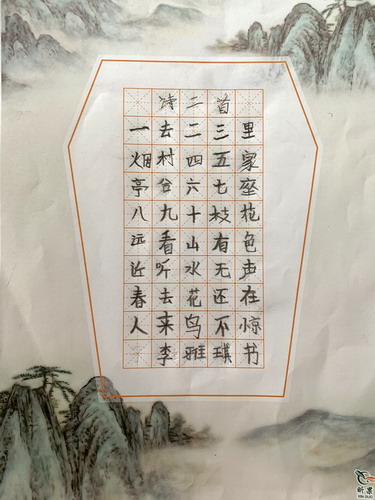 诗二首
一去二三里
烟村四五家
亭台六七座
八九十枝花
远看山有色
近听水无声
春去花还在
人来鸟不惊
李雅琪书